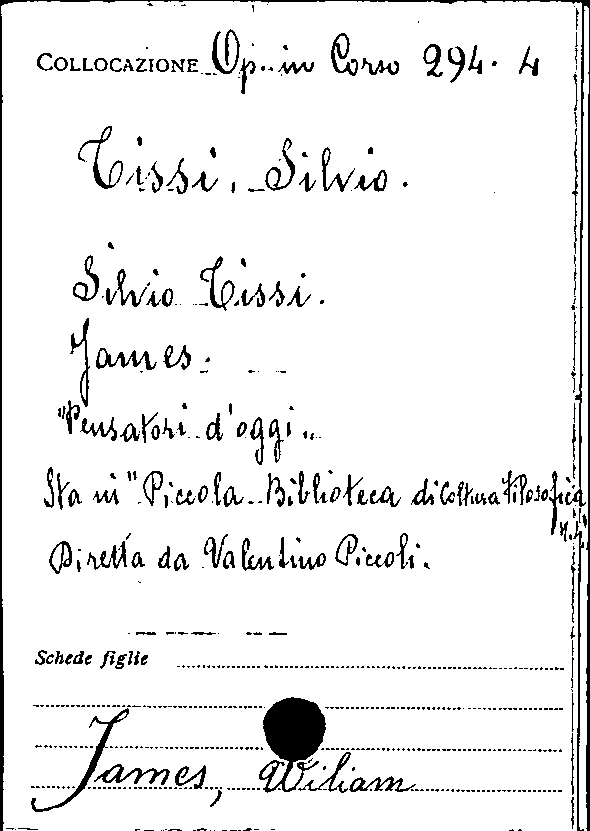 COLLOCAZIONE Op. in Corso 294. 4
Tissi, Silvio.
Silvio Tissi.
James.
"Pensatori d'oggi"
Sta in "Piccola Biblioteca di Coltura Filosofica
N. 4"
Diretta da Valentino Piccoli.
Schede figlie
James, Wiliam